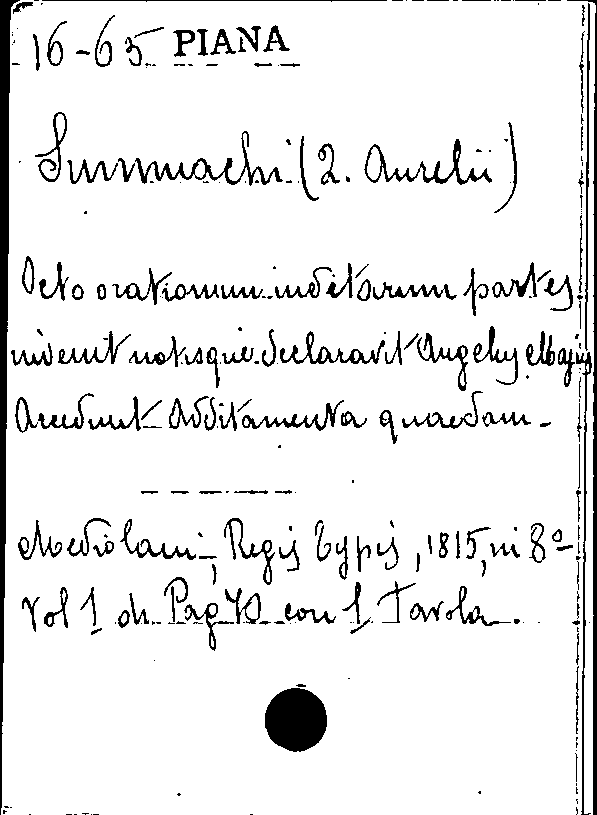 16-65 PIANA
Simmachi (2. Aurelii)
Octo orationum ineditarum partes
invenit notisque declaravit Angelus Majus
Accedunt additamenta quaedam -
Mediolani, Regis Typis, 1815, in 8º-
Vol 1 di Pag 70 con 1 Tavola.